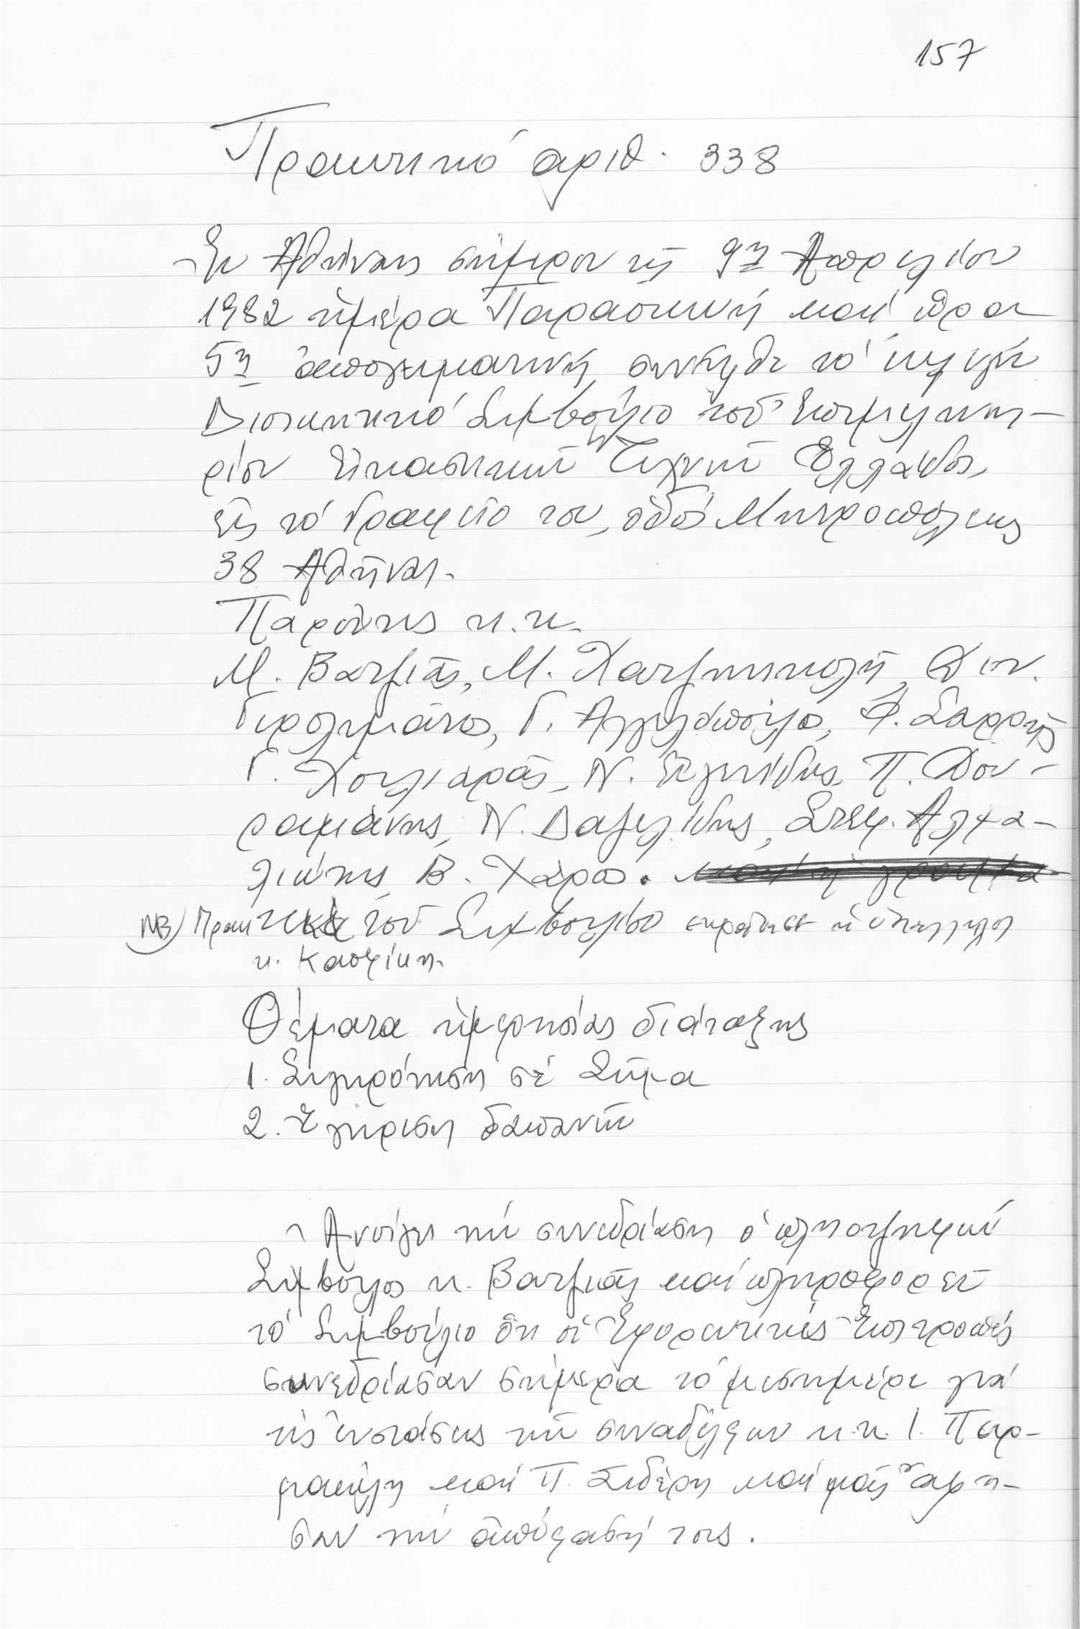 157
Πρακτικό αριθ. 338
Ἐν Ἀθήναις σήμερον τῇ 9ῃ Ἀπριλίου
1982 ἡμέρα Παρασκευή καί ὥρα
5η ἀπογευματινή συνῆλθε τό
Διοικητικό Συμβούλιο τοῦ Ἐπιμελητη-
ρίου Εἰκαστικῶν Τεχνῶν Ἑλλάδος,
εἰς τό Γραφεῖο του, ὁδός Μητροπόλεως
38 Ἀθῆναι.
Παρόντες κ.κ.
Μ. Βατζιᾶς, Μ. Χατζηνικολῆ, Διον.
Γερολυμάτος, Γ. Ἀγγελόπουλος, Φ. Σαρρῆς
Γ. Χουλιαρᾶς, Ν. Π. Δου-
ραμάνης, Ν. Δαζελίδης, Στεφ.
Β. Χάρος.
ΝΒ) Πρακτικά τοῦ Συμβουλίου ἐκράτησε ἡ ὑπάλληλος
κ. Κασφίκη.
Θέματα ἡμερησίας διάταξης
1. Συγκρότηση σέ Σῶμα
2. Ἔγκριση δαπανῶν
Ἀνοίγει τήν συνεδρίαση ὁ πλειοψηφῶν
Σύμβουλος κ. Βατζιᾶς καί πληροφορεῖ
τό Συμβούλιο ὅτι οἱ Ἐφορευτικές Ἐπιτροπές
συνεδρίασαν σήμερα τό μεσημέρι γιά
τίς ἐνστάσεις τῶν συναδέλφων κ.κ. Ι. Παρ-
μακέλη καί Π. Σιδέρη καί μᾶς ἄφη-
σαν τήν ἀπόφασή τους.